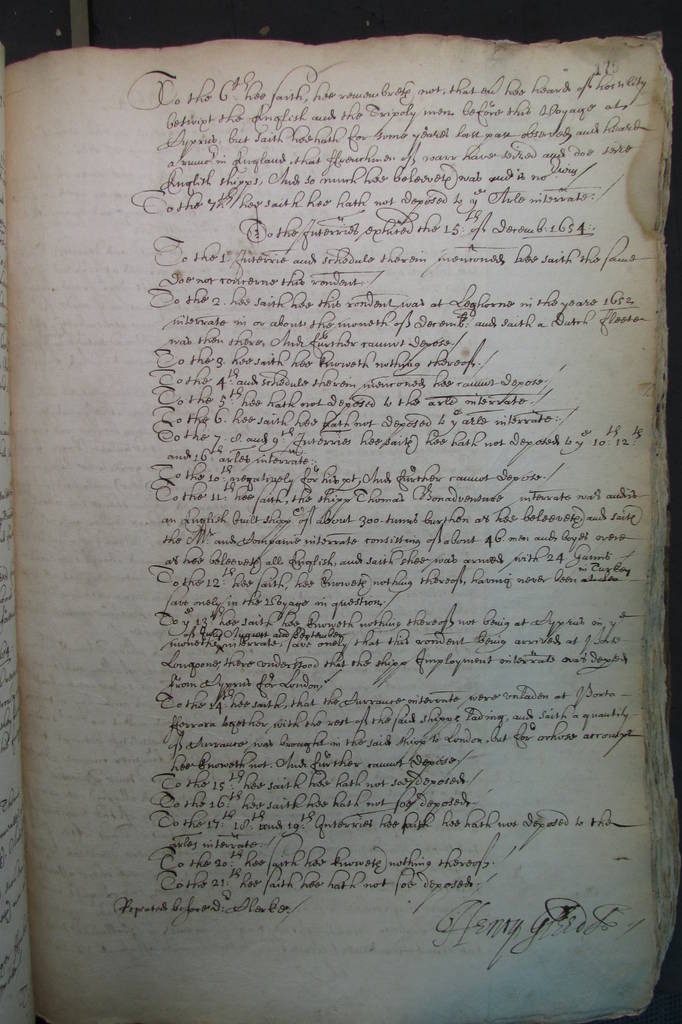 To the 6th hee saith, hee remembreth not, that ever hee heard of hostility
betwixt the English and the Tripoly men before this Voyage at
Cyprus, but saith hee hath for some yeares last past observed and heard
a rumor in England, that ffrenchmen of warr have seized and doe seize
English shipps, And so much hee beleeveth was and is no
To the 7th hee saith hee hath not deposed to ye Arle interrate:/
To the Interries exhited the 15th of Decemb. 1654:
To the 1. Interrie and schedule therein menconed, hee saith the same
doe not concerne this rondent:/
To the 2. hee saith hee this rondent was at Leghorne in the yeare 1652
interrate in or about the moneth of Decemb: and saith a Dutch ffleete
was then there, And further cannot depose:/
To the 3. hee saith hee knoweth nothing thereof:/
To the 4th and schedule therein menconed, hee cannot depose:/
To the 5th hee hath not deposed to the arle interrate:/
To the 6. hee saith hee hath not deposed to ye arle interrate:/
To the 7. 8. and 9th Interries hee saith hee hath not deposed to ye 10th 12th
and 16th arles interrate:
To the 10th negatively for his pt, And further cannot depose:/
To the 11th hee saith, the shipp Thomas Bonadventure interrate was and is
an English built shipp of about 300 tunns burthen as hee beleeveth and saith
the Mr. and Companie interrate consisting of about 46 men and boyes were
as hee beleeveth all English, and saith shee was armed with 24 Gunns
To the 12th hee saith, hee knoweth nothing thereof, having never been in Turkey
save onely in the Voyage in question:/
To ye 13th hee saith hee knoweth nothing thereof not being at Cyprus in ye
of July August and September
moneths interrate, save onely that this rondent being arrived at Porto
Longone, there understood that the shipps Imployment interrate was
from Cyprus for London:/
To the 14th hee saith, that the Currance interrate were unladen at Porto
fferrara together with the rest of the said shipps Lading, and saith a quantity
of Currance was brought in the said shipp to London, but for whose accompt
hee knoweth not. And further cannot depose:/
To the 15th hee saith hee hath not soe deposed:/
To the 16th hee saith hee hath not soe deposed:
To the 17th 18th and 19th Interries hee saith hee hath not deposed to the
arles interrate:/
To the 20th hee saith hee knoweth nothing thereof:/
To the 21th hee saith hee hath not soe deposed:/
Repeated before Dr Clerke:/
Henry